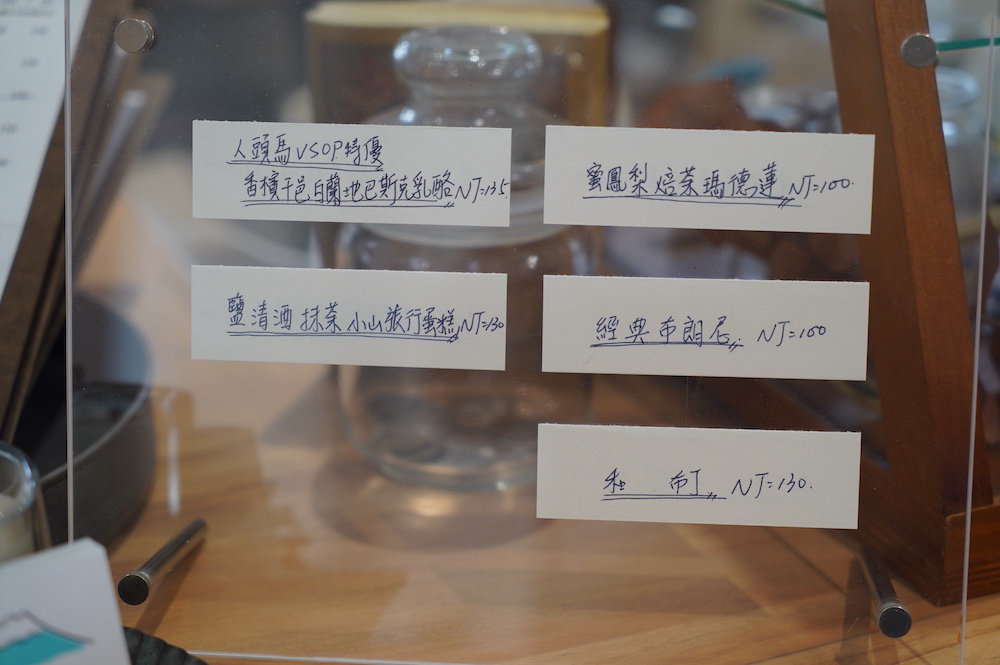 人頭馬VSOP特優
香檳干邑白蘭地巴斯克乳酪 NT=135.
鹽清酒抹茶小山旅行蛋糕 NT=130
蜜鳳梨焙茶瑪德蓮 NT=100.
經典布朗尼 NT=100
布丁 NT=130.